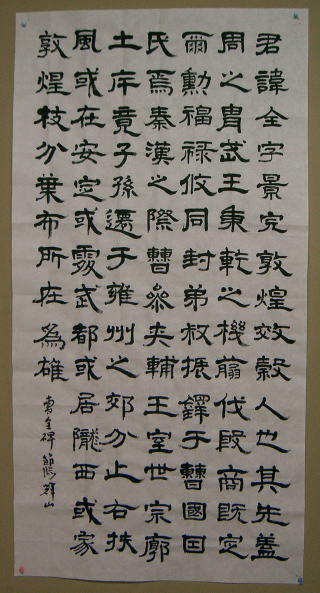 君諱全字景完敦煌效穀人也其先蓋
周之冑武王秉乾之機翦伐殷商既定
爾勳福祿攸同封弟叔振鐸于曹國因
氏焉秦漢之際曹參夾輔王室世宗廓
土斥竟子孫遷于雍州之郊分止右扶
風或在安定或處武都或居隴西或家
敦煌枝分葉布所在為雄
曹全碑 節臨